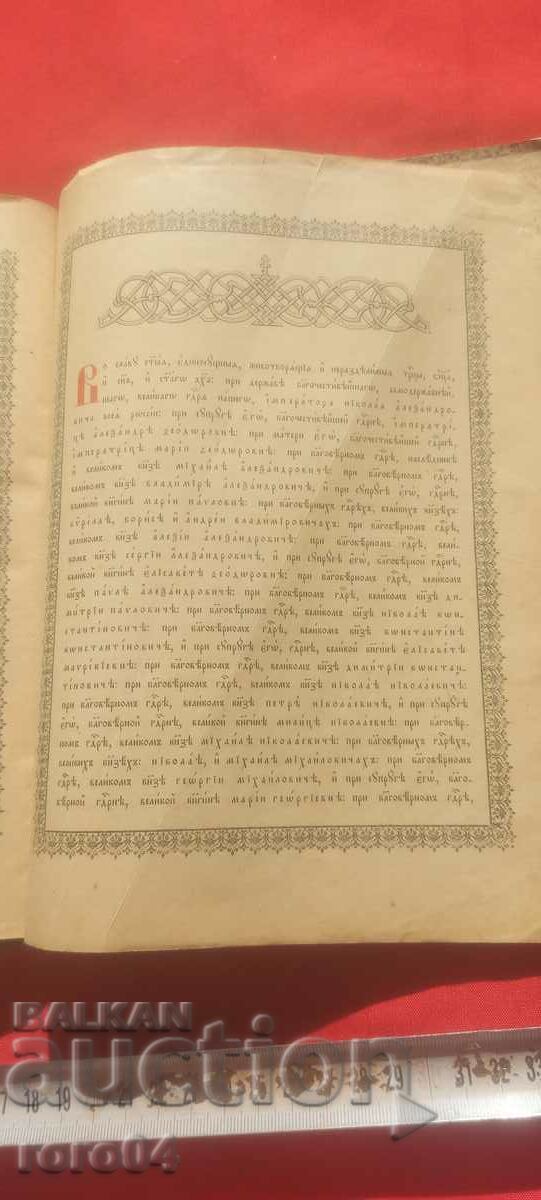 Во славу ст҃ыѧ, є҆диносꙋ́щныѧ, животворѧ́щїѧ и҆ нераздѣ́льныѧ трⷪ҇цы, ѻ҆ц҃а̀,
и҆ сн҃а, и҆ ст҃а́гѡ дх҃а: при держа́вѣ бл҃гочести́вѣйшагѡ, самодержа́внѣй-
шагѡ, вели́кагѡ гдⷭ҇рѧ на́шегѡ, і҆мпера́тора нїкола́а а҆леѯа́ндро-
вича всеѧ̀ рѡссі́и: при сꙋпрꙋ́гѣ є҆гѡ̀, бл҃гочести́вѣйшей гдⷭ҇рнѣ, і҆мператрі́-
цѣ а҆леѯа́ндрѣ ѳео́дѡровнѣ: при ма́тери є҆гѡ̀, бл҃гочести́вѣйшей гдⷭ҇рнѣ,
і҆мператрі́цѣ марі́и ѳео́дѡровнѣ: при бл҃говѣ́рномъ гдⷭ҇рѣ, наслѣ́дникѣ
и҆ вели́комъ кн҃зѣ мїхаи́лѣ а҆леѯа́ндровичѣ: при бл҃говѣ́рномъ гдⷭ҇рѣ,
вели́комъ кн҃зѣ влади́мїрѣ а҆леѯа́ндровичѣ, и҆ при сꙋпрꙋ́гѣ є҆гѡ̀, гдⷭ҇рнѣ,
вели́кой кн҃ги́нѣ марі́и па́ѵловнѣ: при бл҃говѣ́рныхъ гдⷭ҇рѣхъ, вели́кихъ кн҃зѣхъ:
кѷрі́ллѣ, бори́сѣ и҆ а҆ндре́и влади́мїровичахъ: при бл҃говѣ́рномъ гдⷭ҇рѣ,
вели́комъ кн҃зѣ а҆леѯі́и а҆леѯа́ндровичѣ: при бл҃говѣ́рномъ гдⷭ҇рѣ, вели́-
комъ кн҃зѣ се́ргїи а҆леѯа́ндровичѣ, и҆ при сꙋпрꙋ́гѣ є҆гѡ̀, бл҃говѣ́рной гдⷭ҇рнѣ,
вели́кой кн҃ги́нѣ є҆лїсаве́тѣ ѳео́дѡровнѣ: при бл҃говѣ́рномъ гдⷭ҇рѣ, вели́комъ
кн҃зѣ па́ѵлѣ а҆леѯа́ндровичѣ: при бл҃говѣ́рномъ гдⷭ҇рѣ, вели́комъ кн҃зѣ ди-
ми́трїи па́ѵловичѣ: при бл҃говѣ́рномъ гдⷭ҇рѣ, вели́комъ кн҃зѣ нїкола́ѣ кѡн-
стантї́новичѣ: при бл҃говѣ́рномъ гдⷭ҇рѣ, вели́комъ кн҃зѣ кѡнстантї́нѣ
кѡнстантї́новичѣ, и҆ при сꙋпрꙋ́гѣ є҆гѡ̀, гдⷭ҇рнѣ, вели́кой кн҃ги́нѣ є҆лїсаве́тѣ
маѵрикі́евнѣ: при бл҃говѣ́рномъ гдⷭ҇рѣ, вели́комъ кн҃зѣ дими́трїи кѡнстан-
тї́новичѣ: при бл҃говѣ́рномъ гдⷭ҇рѣ, вели́комъ кн҃зѣ нїкола́ѣ нїкола́евичѣ:
при бл҃говѣ́рномъ гдⷭ҇рѣ, вели́комъ кн҃зѣ петрѣ̀ нїкола́евичѣ, и҆ при сꙋпрꙋ́гѣ
є҆гѡ̀, бл҃говѣ́рной гдⷭ҇рнѣ, вели́кой кн҃ги́нѣ мили́цѣ нїкола́евнѣ: при бл҃говѣ́р-
номъ гдⷭ҇рѣ, вели́комъ кн҃зѣ мїхаи́лѣ нїкола́евичѣ: при бл҃говѣ́рныхъ гдⷭ҇рѣхъ,
вели́кихъ кн҃зѣхъ: нїкола́ѣ, и҆ мїхаи́лѣ мїха́йловичахъ: при бл҃говѣ́рномъ
гдⷭ҇рѣ, вели́комъ кн҃зѣ геѡ́ргїи мїха́йловичѣ, и҆ при сꙋпрꙋ́гѣ є҆гѡ̀, бл҃го-
вѣ́рной гдⷭ҇рнѣ, вели́кой кн҃ги́нѣ марі́и геѡ́ргїевнѣ: при бл҃говѣ́рномъ гдⷭ҇рѣ,
BALKAN
auction
roro04
18 19 29 31 32 33